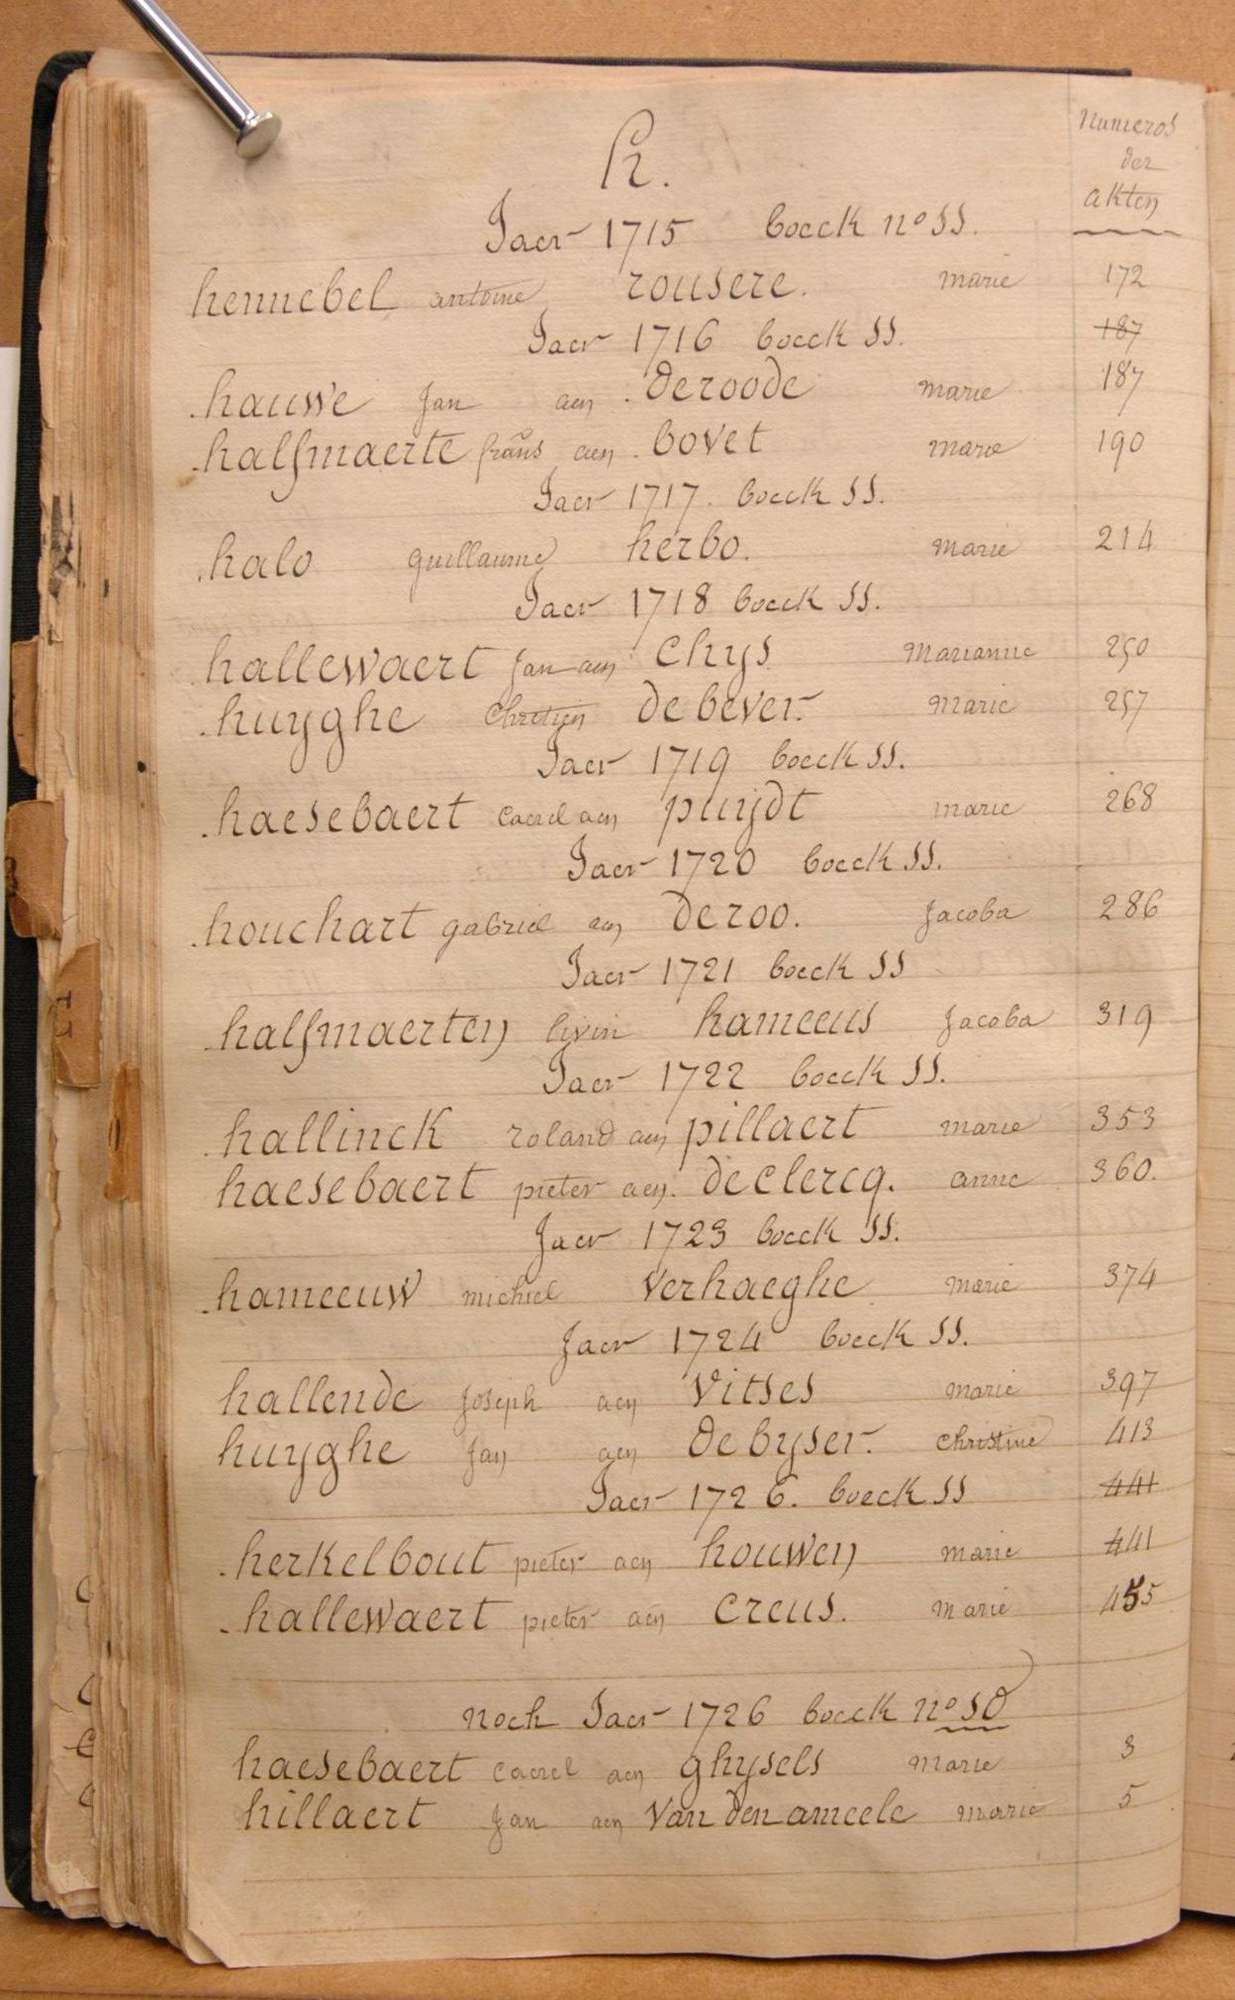 Numeros
der
akten
h.
Jaer 1715 boeck no SS.
hennebel antoine rousere. marie 172
Jaer 1716 boeck SS. 187
hauwe Jan aen deroode marie 187
halfmaerte frans aen bovet marie 190
Jaer 1717 boeck SS.
halo guillaume herbo. marie 214
Jaer 1718 boeck SS.
hallewaert Jan aen Chys marianne 250
huyghe chretien de bever. marie 257
Jaer 1719 boeck SS.
haesebaert caerel aen puijdt marie 268
Jaer 1720 boeck SS.
houchart gabriel aen deroo. Jacoba 286
Jaer 1721 boeck SS
halfmaerten livin hameeus Jacoba 319
Jaer 1722 boeck SS.
hallinck roland aen pillaert marie 353
haesebaert pieter aen. declercq. anne 360.
Jaer 1723 boeck SS.
hameeuw michiel verhaeghe marie 374
Jaer 1724 boeck SS.
hallende Joseph aen vitses marie 397
huyghe Jan aen de byser. christine 413
Jaer 1726. boeck SS 441
herkelbout pieter aen houwen marie 441
hallewaert pieter aen creus. marie 455
noch Jaer 1726 boeck no
haesebaert caerel aen ghysels marie 3
hillaert Jan aen van den ameele marie 5